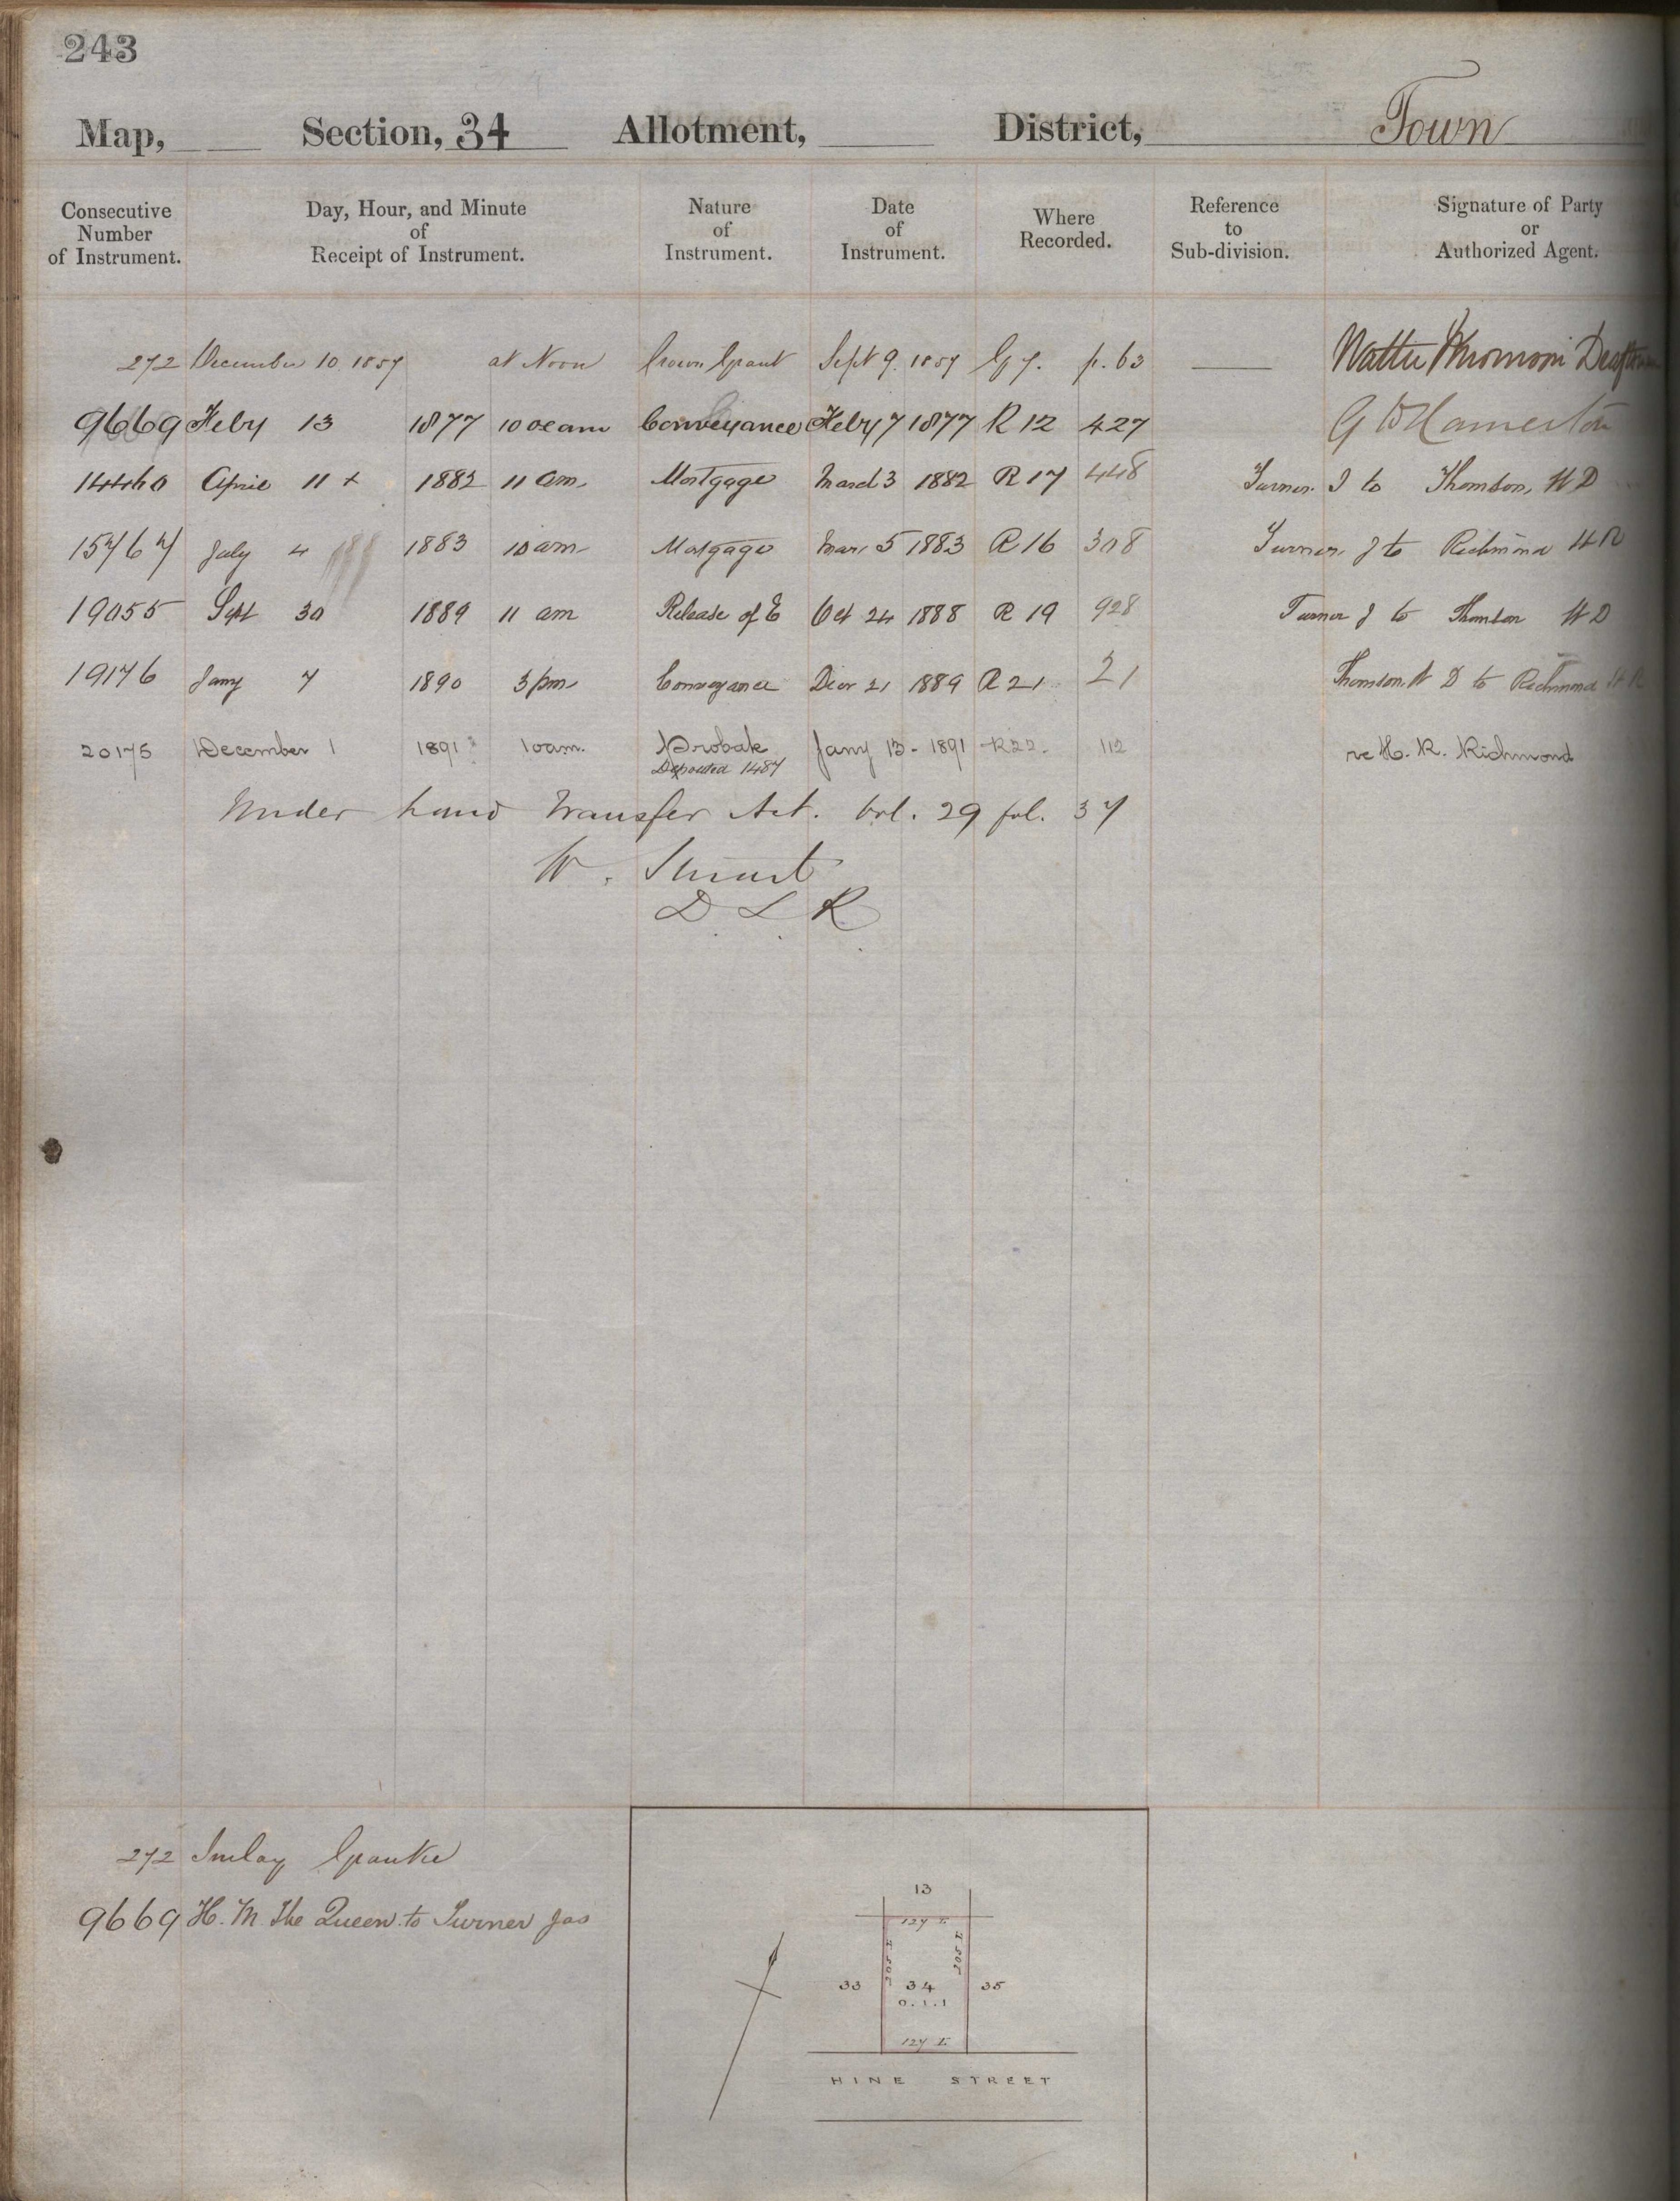 243
Map, Section, 34 Allotment, District, Town
Consecutive Number of Instrument. Day, Hour, and Minute of Receipt of Instrument. Nature of Instrument. Date of Instrument. Where Recorded. Reference to Sub-division. Signature of Party or Authorized Agent.
272 December 10. 1857 at Noon Crown Grant Sept 9. 1857 G 7. p. 63
9669 Feby 13 1877 10 am Conveyance Feby 7 1877 R 12 427
14460 April 11 1882 11 am Mortgage March 3 1882 R 17 448 Turner J to Thomson, W D
15767 July 4 1883 10 am Mortgage Mar 5 1883 R 16 308 Turner J to Richmond H R
19055 Sept 30 1889 11 am Release of E Oct 24 1888 R 19 928 Turner J to Thomson W D
19176 Jany 7 1890 3 pm Conveyance Decr 21 1889 R 21 21 Thomson W D to Richmond H R
20175 December 1 1891 10 am. Probate Jany 13 - 1891 R22. 112 re H. R. Richmond
Deposited 1487
Under Land Transfer Act. Vol. 29 fol. 37
W. Stuart
D. L. R.
272 Imlay Grantee
9669 H. M. The Queen to Turner Jas
13
127 L
205 L 205 L
33 34 35
0.1.1
127 L
HINE STREET